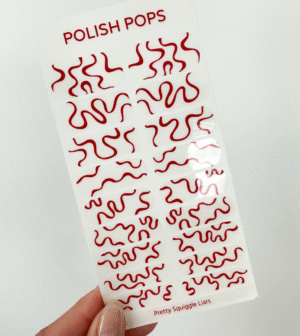 POLISH POPS
Pretty Squiggle Liars